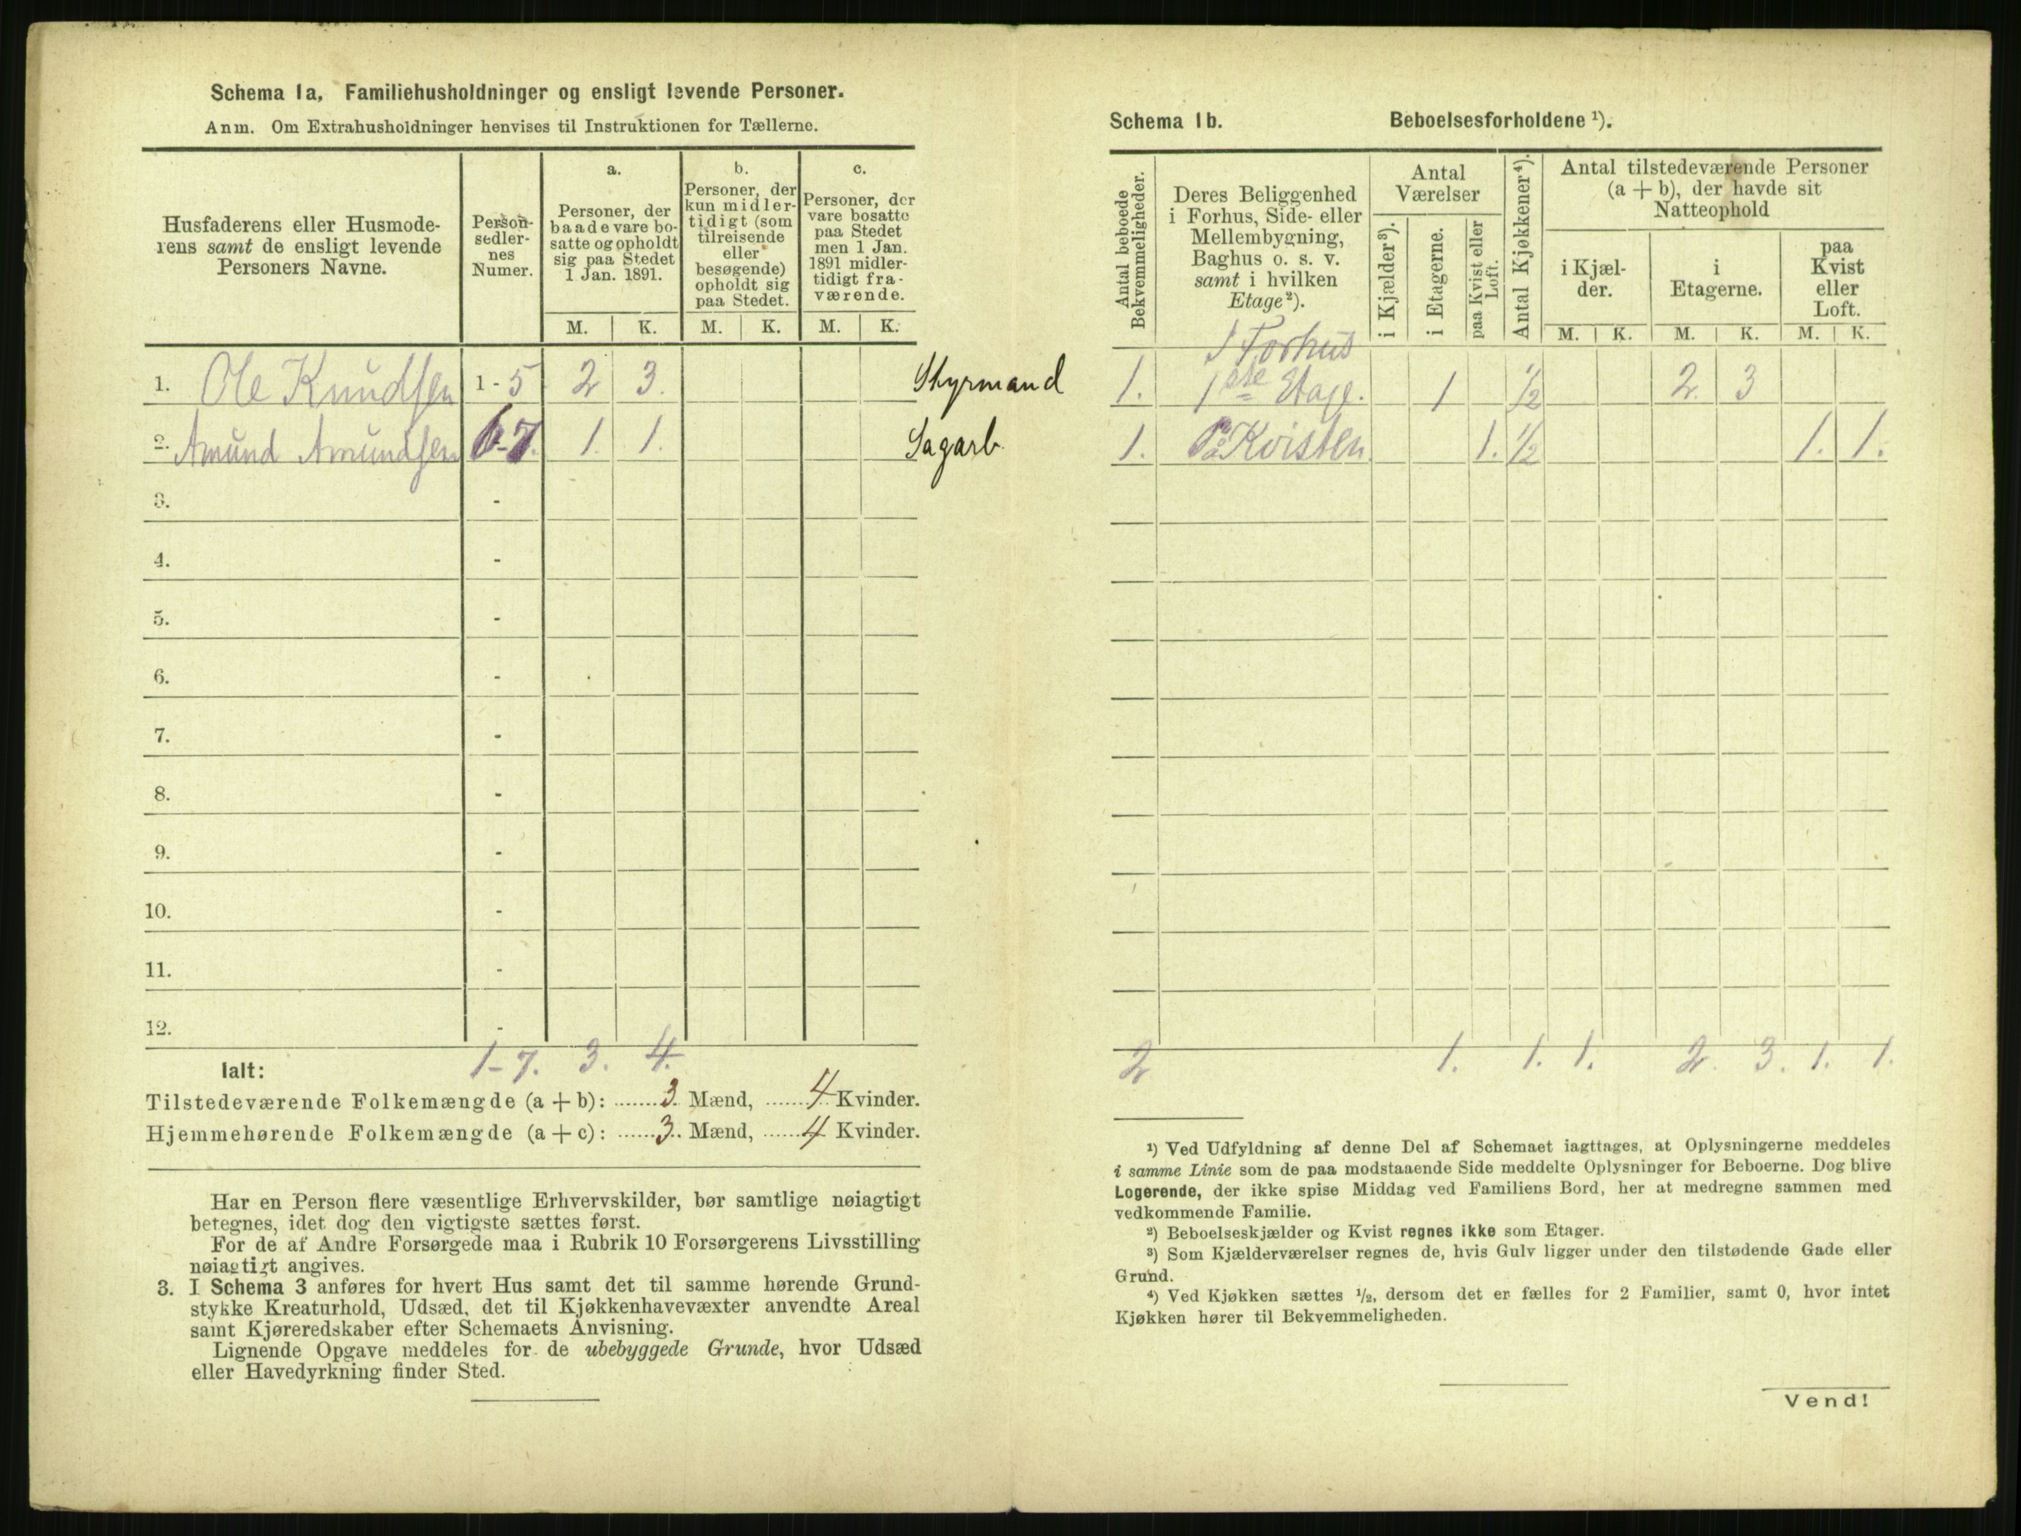 Schema 1a. Familiehusholdninger og ensligt levende Personer.
Anm. Om Extrahusholdninger henvises til Instruktionen for Tællerne.
Husfaderens eller Husmode-
rens samt de ensligt levende
Personers Navne.
Person-
sedler-
nes
Numer.
a.
Personer, der
baade vare bo-
satte og opholdt
sig paa Stedet
1 Jan. 1891.
b.
Personer, der
kun midler-
tidigt (som
tilreisende
eller
besøgende)
opholdt sig
paa Stedet.
c.
Personer, der
vare bosatte
paa Stedet
men 1 Jan.
1891 midler-
tidigt fra-
værende.
M. K. M. K. M. K.
1. Ole Knudsen 1 - 5 2 3. Styrmand
2. Amund Amundsen 6-7. 1. 1. Sagarb.
3. -
4. -
5. -
6. -
7. -
8. -
9. -
10. -
11. -
12. -
Ialt: 1-7. 3. 4.
Tilstedeværende Folkemængde (a + b): 3 Mænd, 4 Kvinder.
Hjemmehørende Folkemængde (a + c): 3 Mænd, 4 Kvinder.
Har en Person flere væsentlige Erhvervskilder, bør samtlige nøiagtigt
betegnes, idet dog den vigtigste sættes først.
For de af Andre Forsørgede maa i Rubrik 10 Forsørgerens Livsstilling
nøiagtigt angives.
3. I Schema 3 anføres for hvert Hus samt det til samme hørende Grund-
stykke Kreaturhold, Udsæd, det til Kjøkkenhavevæxter anvendte Areal
samt Kjøreredskaber efter Schemaets Anvisning.
Lignende Opgave meddeles for de ubebyggede Grunde, hvor Udsæd
eller Havedyrkning finder Sted.
Schema 1b. Beboelsesforholdene ¹).
Antal beboede
Bekvemmeligheder.
Deres Beliggenhed
i Forhus, Side- eller
Mellembygning,
Baghus o. s. v.
samt i hvilken
Etage²).
Antal
Værelser
i Kjælder³).
i Etagerne.
paa Kvist eller
Loft.
Antal Kjøkkener⁴).
Antal tilstedeværende Personer
(a + b), der havde sit
Natteophold
i Kjæl-
der.
i
Etagerne.
paa
Kvist
eller
Loft.
M. K. M. K. M. K.
I Forhus
1. 1ste Etage. 1 1/2 2. 3
1. Paa Kvisten 1. 1/2 1. 1.
2 1. 1. 1. 2. 3. 1. 1.
¹) Ved Udfyldning af denne Del af Schemaet iagttages, at Oplysningerne meddeles
i samme Linie som de paa modstaaende Side meddelte Oplysninger for Beboerne. Dog blive
Logerende, der ikke spise Middag ved Familiens Bord, her at medregne sammen med
vedkommende Familie.
²) Beboelseskjælder og Kvist regnes ikke som Etager.
³) Som Kjælderværelser regnes de, hvis Gulv ligger under den tilstødende Gade eller
Grund.
⁴) Ved Kjøkken sættes ½, dersom det er fælles for 2 Familier, samt 0, hvor intet
Kjøkken hører til Bekvemmeligheden.
Vend!